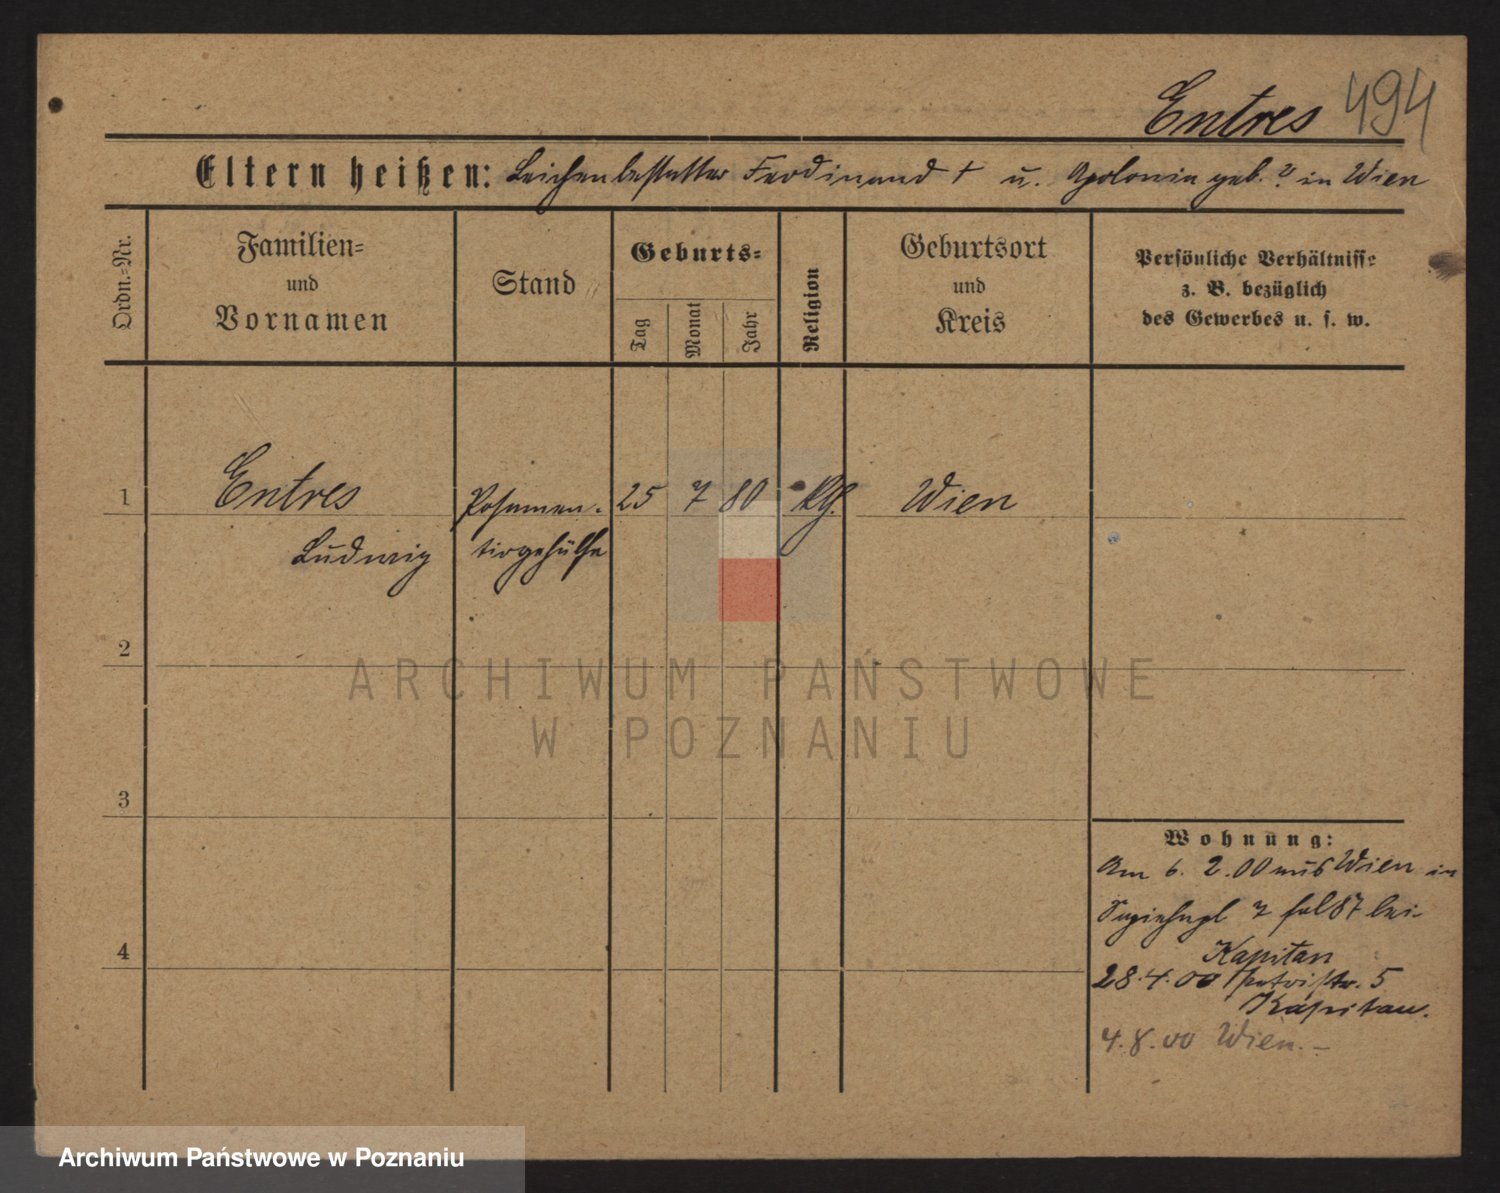 Entres 494
Eltern heißen: Leichenbestatter Ferdinand † u. Apolonia geb. ? in Wien
Ordn.-Nr.
Familien-
und
Vornamen
Stand
Geburts-
Tag
Monat
Jahr
Religion
Geburtsort
und
Kreis
Persönliche Verhältnisse
z. B. bezüglich
des Gewerbes u. s. w.
1 Entres Posamen- 25 7 80 kth. Wien
Ludwig tirgehülfe
2
3
4
Wohnung:
Am 6. 2. 00 aus Wien in
7 bei
Kapitan
28.4.00 Petristr. 5
Kapitan.
4.8.00 Wien. –
ARCHIWUM PAŃSTWOWE
W POZNANIU
Archiwum Państwowe w Poznaniu